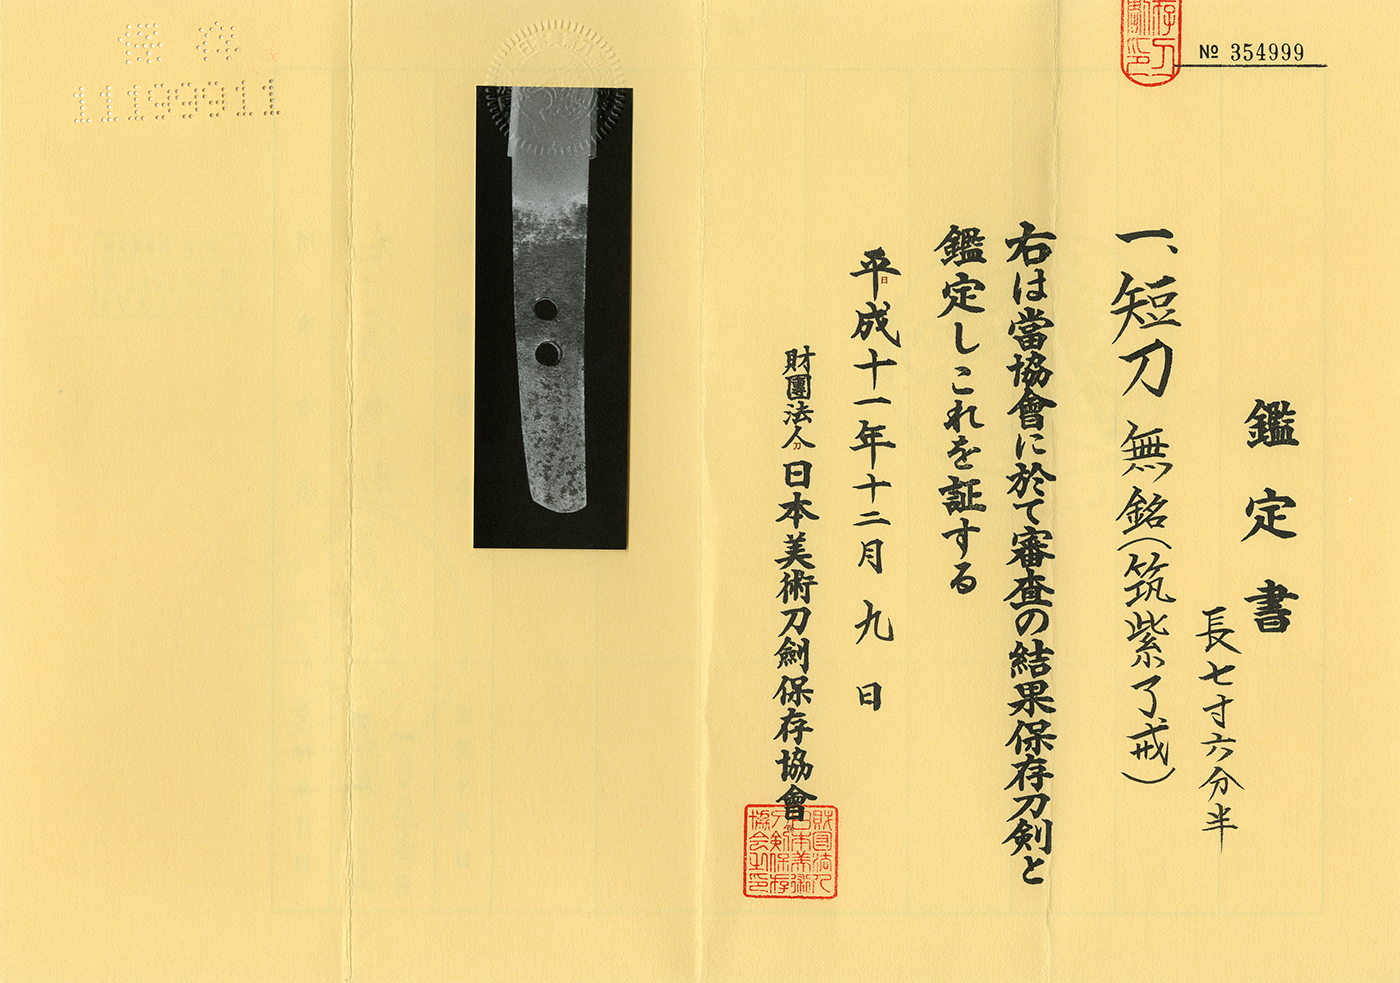 № 354999
鑑定書
長七寸六分半
一、短刀 無銘(筑紫了戒)
右は當協會に於て審査の結果保存刀剣と
鑑定しこれを証する
平成十一年十二月九日
財團法人 日本美術刀劍保存協會
財団法人
日本美術
刀剣保存
協会之印
保存
11199911